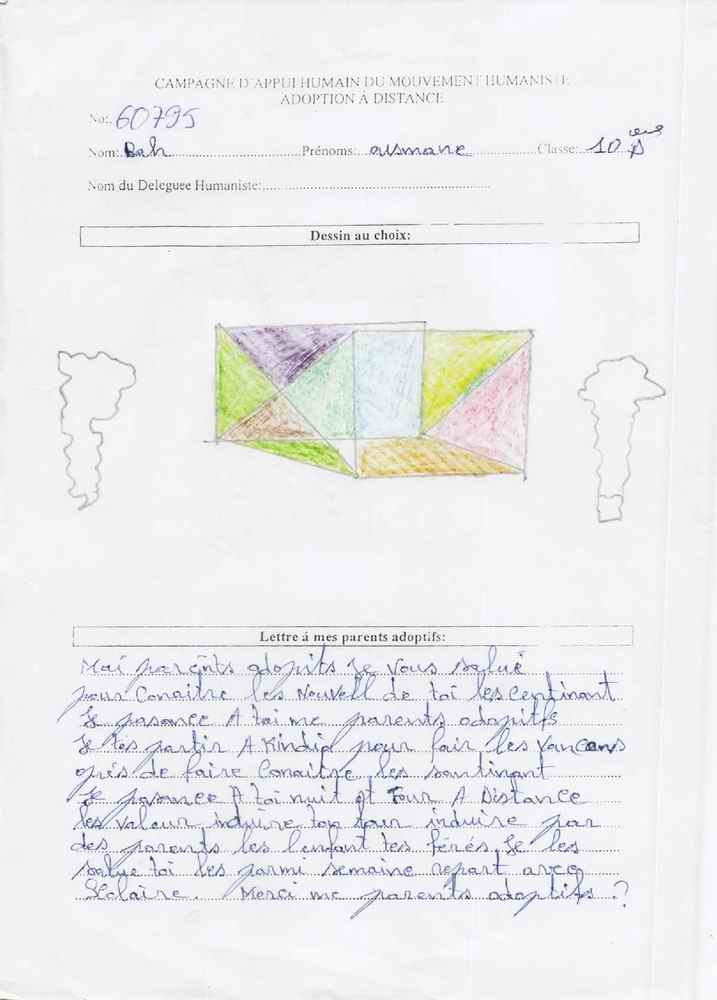 CAMPAGNE D'APPUI HUMAIN DU MOUVEMENT HUMANISTE
ADOPTION Á DISTANCE
No: 60795
Nom: Bah Prénoms: ousmane Classe: 10
Nom du Deleguee Humaniste:
Dessin au choix:
Lettre á mes parents adoptifs:
Mai parents adopits Je Vous salué
pour Conaitre les Nouvell de toi les centinant
Je pasance A toi me parents adoptifs
Je tes partir A Kindia pour fair les Vancans
aprés de faire Conaitre les santinant
Je pasance A toi nuit et Four A Distance
les valeur induire induire par
des parents les lenfant tes férés Je les
salue toi les parmi semaine repart avec
Sclaire. Merci me parents adoptifs ?